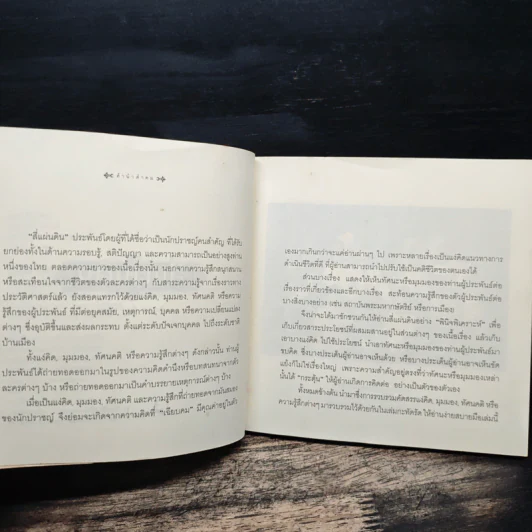 คำนำสำนักพิมพ์
"สี่แผ่นดิน" ประพันธ์โดยผู้ที่ได้ชื่อว่าเป็นนักปราชญ์คนสำคัญ ที่ได้รับ
ยกย่องทั้งในด้านความรอบรู้, สติปัญญา และความสามารถเป็นอย่างสูงท่าน
หนึ่งของไทย ตลอดความยาวของเนื้อเรื่องนั้น นอกจากความรู้สึกสนุกสนาน
หรือสะเทือนใจจากชีวิตของตัวละครต่างๆ กับสาระความรู้จากเรื่องราวทาง
ประวัติศาสตร์แล้ว ยังสอดแทรกไว้ด้วยแง่คิด, มุมมอง, ทัศนคติ หรือความ
รู้สึกของผู้ประพันธ์ ที่มีต่อยุคสมัย, เหตุการณ์, บุคคล หรือความเปลี่ยนแปลง
ต่างๆ ซึ่งอุบัติขึ้นและส่งผลกระทบ ตั้งแต่ระดับปัจเจกบุคคล ไปถึงระดับชาติ
บ้านเมือง
ทั้งแง่คิด, มุมมอง, ทัศนคติ หรือความรู้สึกต่างๆ ดังกล่าวนั้น ท่านผู้
ประพันธ์ได้ถ่ายทอดออกมาในรูปของความคิดคำนึงหรือบทสนทนาจากตัว
ละครต่างๆ บ้าง หรือถ่ายทอดออกมาเป็นคำบรรยายเหตุการณ์ต่างๆ บ้าง
เมื่อเป็นแง่คิด, มุมมอง, ทัศนคติ และความรู้สึกที่ถ่ายทอดจากมันสมอง
ของนักปราชญ์ จึงย่อมจะเกิดจากความคิดที่ "เฉียบคม" มีคุณค่าอยู่ในตัว
เองมากเกินกว่าจะแค่อ่านผ่านๆ ไป เพราะหลายเรื่องเป็นแง่คิดแนวทางการ
ดำเนินชีวิตที่ดี ที่ผู้อ่านสามารถนำไปปรับใช้เป็นคติชีวิตของตนเองได้
ส่วนบางเรื่อง แสดงให้เห็นทัศนะหรือมุมมองของท่านผู้ประพันธ์ต่อ
เรื่องราวที่เกี่ยวข้องและอีกบางเรื่อง สะท้อนความรู้สึกของตัวผู้ประพันธ์ต่อ
บางสิ่งบางอย่าง เช่น สถาบันพระมหากษัตริย์ หรือการเมือง
จึงน่าจะได้มาชักชวนกันให้อ่านสี่แผ่นดินอย่าง "พินิจพิเคราะห์" เพื่อ
เก็บเกี่ยวสาระประโยชน์ที่ผสมผสานอยู่ในส่วนต่างๆ ของเนื้อเรื่อง แล้วเก็บ
เอาบางแง่คิด ไปใช้ประโยชน์ นำเอาทัศนะหรือมุมมองของท่านผู้ประพันธ์มา
ขบคิด ซึ่งบางประเด็นผู้อ่านอาจเห็นด้วย หรือบางประเด็นผู้อ่านอาจเห็นขัด
แย้งก็ไม่ใช่เรื่องใหญ่ เพราะความสำคัญอยู่ตรงที่ว่าทัศนะหรือมุมมองเหล่า
นั้นได้ "กระตุ้น" ให้ผู้อ่านเกิดการคิดต่อ อย่างเป็นตัวของตัวเอง
ทั้งหมดข้างต้น นำมาซึ่งการรวบรวมคัดสรรแง่คิด, มุมมอง, ทัศนคติ หรือ
ความรู้สึกต่างๆ มารวบรวมไว้ด้วยกันในเล่มกะทัดรัด ให้อ่านง่ายสบายมือเล่มนี้